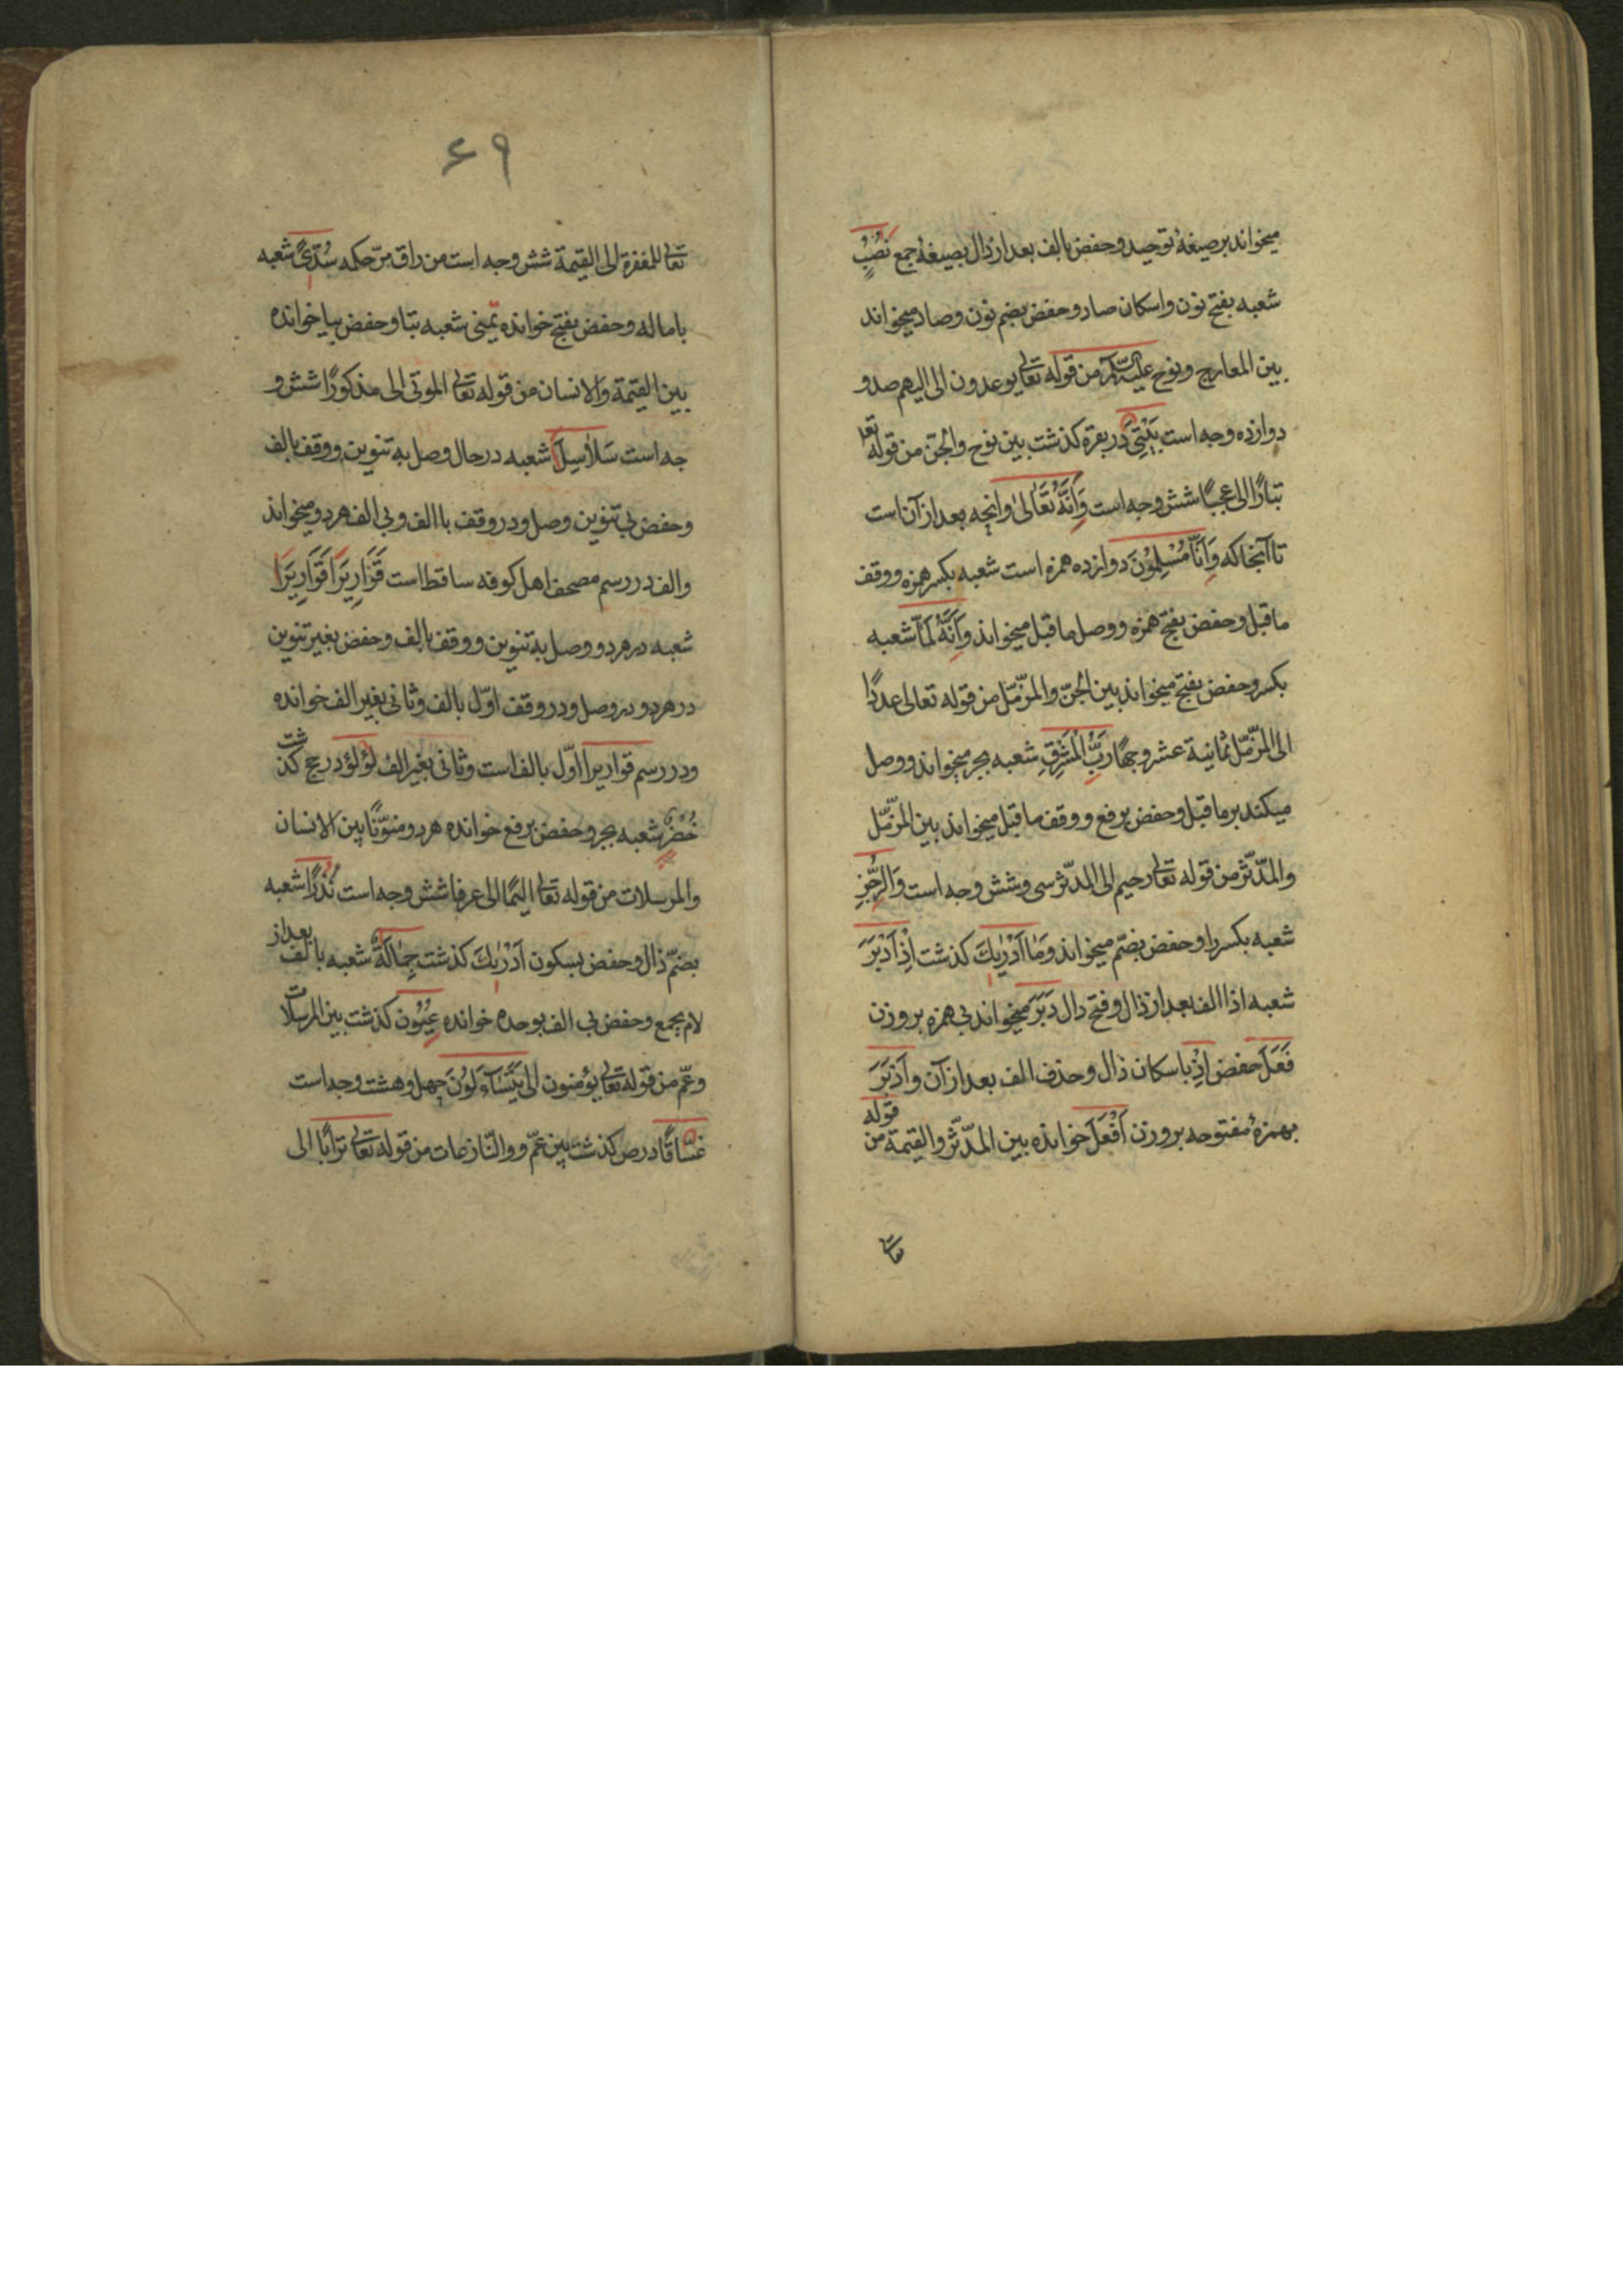 میخواند بر صیغهٔ توحید و حفض بالف بعد از دال بصیغهٔ جمع نُصُبٍ
شعبه بفتح نون و اسکان صاد و حفض بضم نون و صاد میخواند
بین المعارج و نوح علیه السّلم من قوله تعالی یوعدون الی الیهم صد و
دوازده وجه است بَیْتِیَ در بقره کذشت بین نوح والجن من قوله تعا
تبارًا الی عجبًا شش وجه است وَاَنَّهُ تَعَالیٰ وانچه بعد از آن است
تا آنجا که وَاَنَّا مُسْلِمُوْنَ دوازده همزه است شعبه بکسر همزه و وقف
ماقبل و حفض بفتح همزه و وصل ماقبل میخواند وَاَنَّهُ لَمَّا شعبه
بکسر و حفض بفتح میخواند بین الجنّ والمزّمّل من قوله تعالی عددًا
الی المزّمّل ثمانیة عشر وجهًا رَبِّ الْمَشْرِقِ شعبه بجر میخواند و وصل
میکند بر ماقبل و حفض برفع و وقف ماقبل میخواند بین المزّمّل
والمدّثّر من قوله تعالی رحیم الی المدّثر سی و شش وجه است وَالرُّجْزِ
شعبه بکسر را و حفض بضم میخواند وَمَا اَدْرٰیكَ کذشت اِذْ اَدْبَرَ
شعبه اذا الف بعد از ذال و فتح دال دَبَرَ میخواند بی همزه بر وزن
فَعَلَ حفض اِذْ باسکان ذال و حذف الف بعد از آن و اَدْبَرَ
بهمزهٔ مفتوحه بر وزن اَفْعَلَ خوانده بین المدّثّر والقیمة من قوله
تعالی
۶۹
تعالی للمغفرة الی القیمة شش وجه است من راق مرّ حکمه سُدًی شعبه
باماله و حفض بفتح خوانده تمنی شعبه بتا و حفض بیا خوانده
بین القیمة والانسان من قوله تعالی الموتی الی مذکورًا شش و
جه است سَلَاسِلَا شعبه در حال وصل به تنوین و وقف بالف
و حفض بی تنوین وصل و در وقف با الف و بی الف هر دو میخواند
والف در رسم مصحف اهل کوفه ساقط است قَوَارِیْرَا قَوَارِیْرَا
شعبه در هر دو وصل به تنوین و وقف بالف و حفض بغیر تنوین
در هر دو در وصل و در وقف اوّل بالف و ثانی بغیر الف خوانده
و در رسم قواریرا اوّل بالف است و ثانی بغیر الف لؤلؤ در حج کذشت
خُضْرٌ شعبه بجر و حفض برفع خوانده هر دو منوّنًا بین الانسان
والمرسلات من قوله تعالی الیمًا الی عرفا شش وجه است نُذُرًا شعبه
بضمّ ذال و حفض بسکون اَدْرٰیكَ کذشت جِمَالَةٌ شعبه بالف بعد از
لام بجمع و حفض بی الف بوحده خوانده عِیُوْن کذشت بین المرسلات
وعمّ من قوله تعالی یؤمنون الی یَتَسَآءَلُوْنَ چهل و هشت وجه است
غَسَّاقًا در ص کذشت بین عمّ و والنّازعات من قوله تعالی ترابًا الی